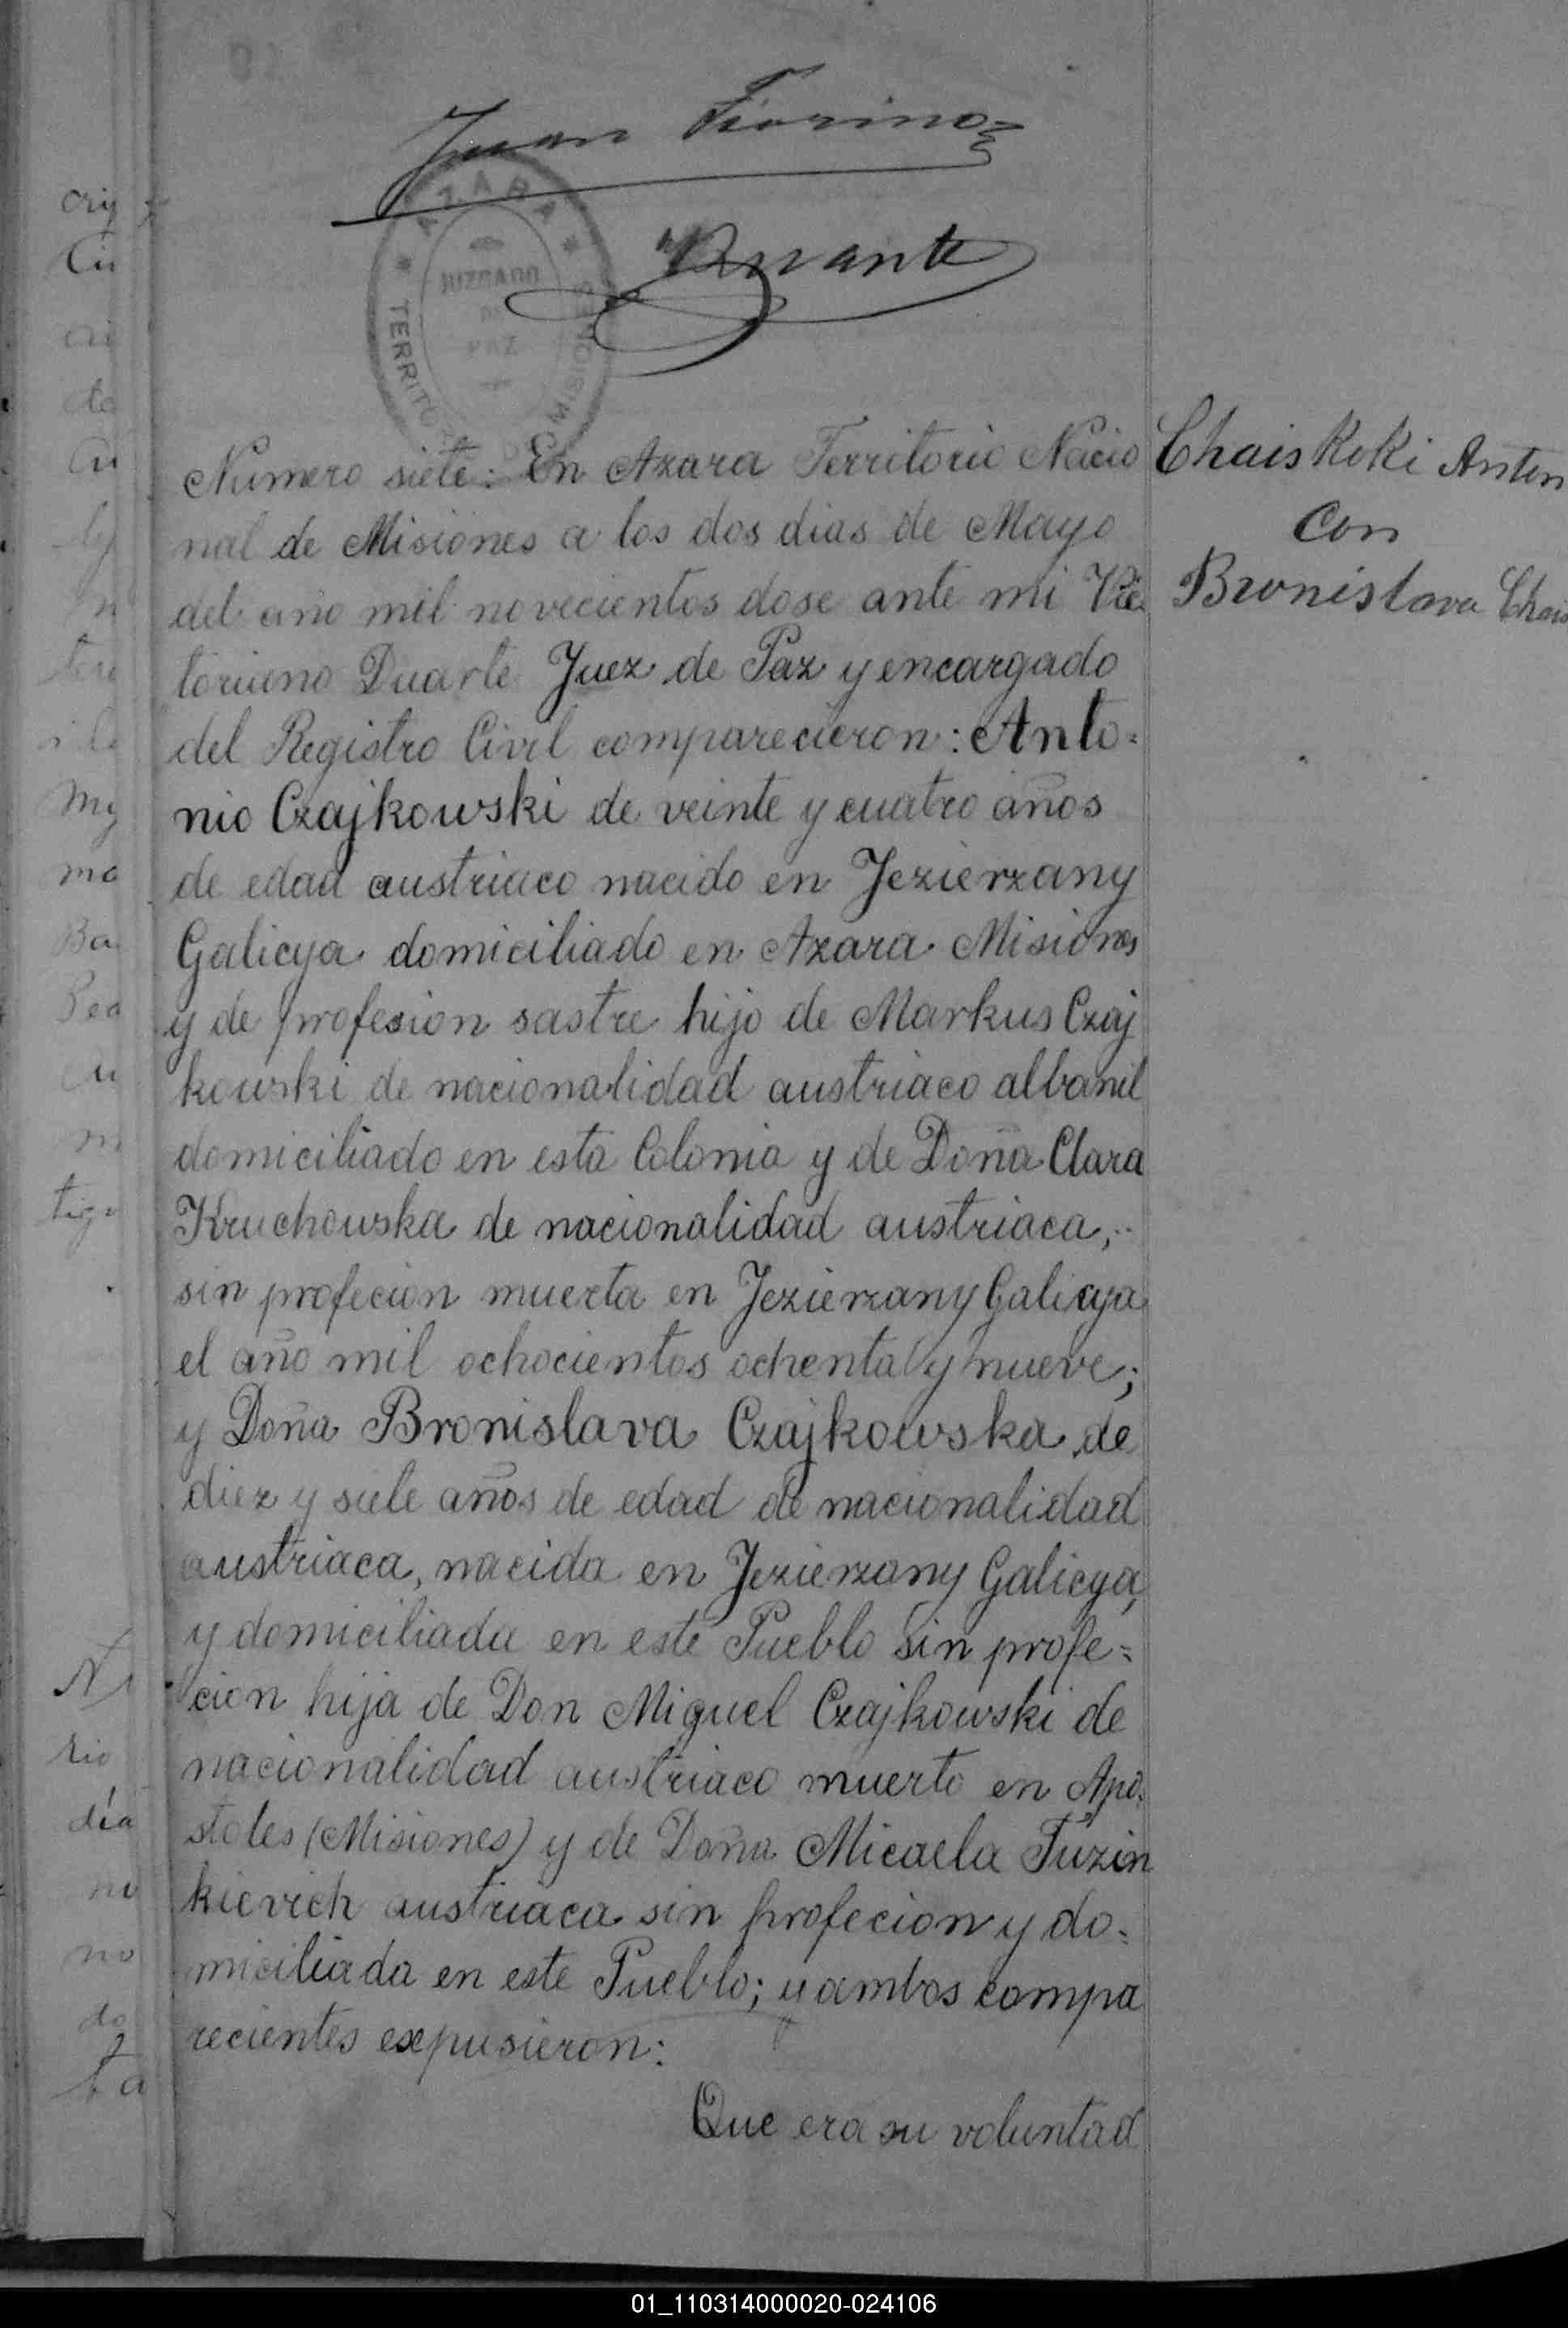 Juan Fiorino
Duarte
AZARA
JUZGADO
DE
PAZ
TERRITORIO DE MISIONES
Chaiskoki Anton
Con
Bronislava Chais
Numero siete: En Azara Territorio Nacio
nal de Misiones a los dos dias de Mayo
del año mil novecientos dose ante mi Vic
toriano Duarte Juez de Paz y encargado
del Registro Civil comparecieron: Anto=
nio Czajkowski de veinte y cuatro años
de edad austriaco nacido en Jezierzany
Galicya domiciliado en Azara Misiones
y de profesion sastre hijo de Markus Czaj
kowski de nacionalidad austriaco albanil
domiciliado en esta Colonia y de Doña Clara
Kruchowska de nacionalidad austriaca,
sin profecion muerta en Jezierzany Galicya
el año mil ochocientos ochenta y nueve;
y Doña Bronislava Czajkowska de
diez y siete años de edad de nacionalidad
austriaca, nacida en Jezierzany Galicya,
y domiciliada en este Pueblo sin profe=
cion hija de Don Miguel Czajkowski de
nacionalidad austriaco muerto en Apo=
stoles (Misiones) y de Doña Micaela Tuzin
kievich austriaca sin profecion y do=
miciliada en este Pueblo; y ambos compa
recientes expusieron:
Que era su voluntad
01_110314000020-024106